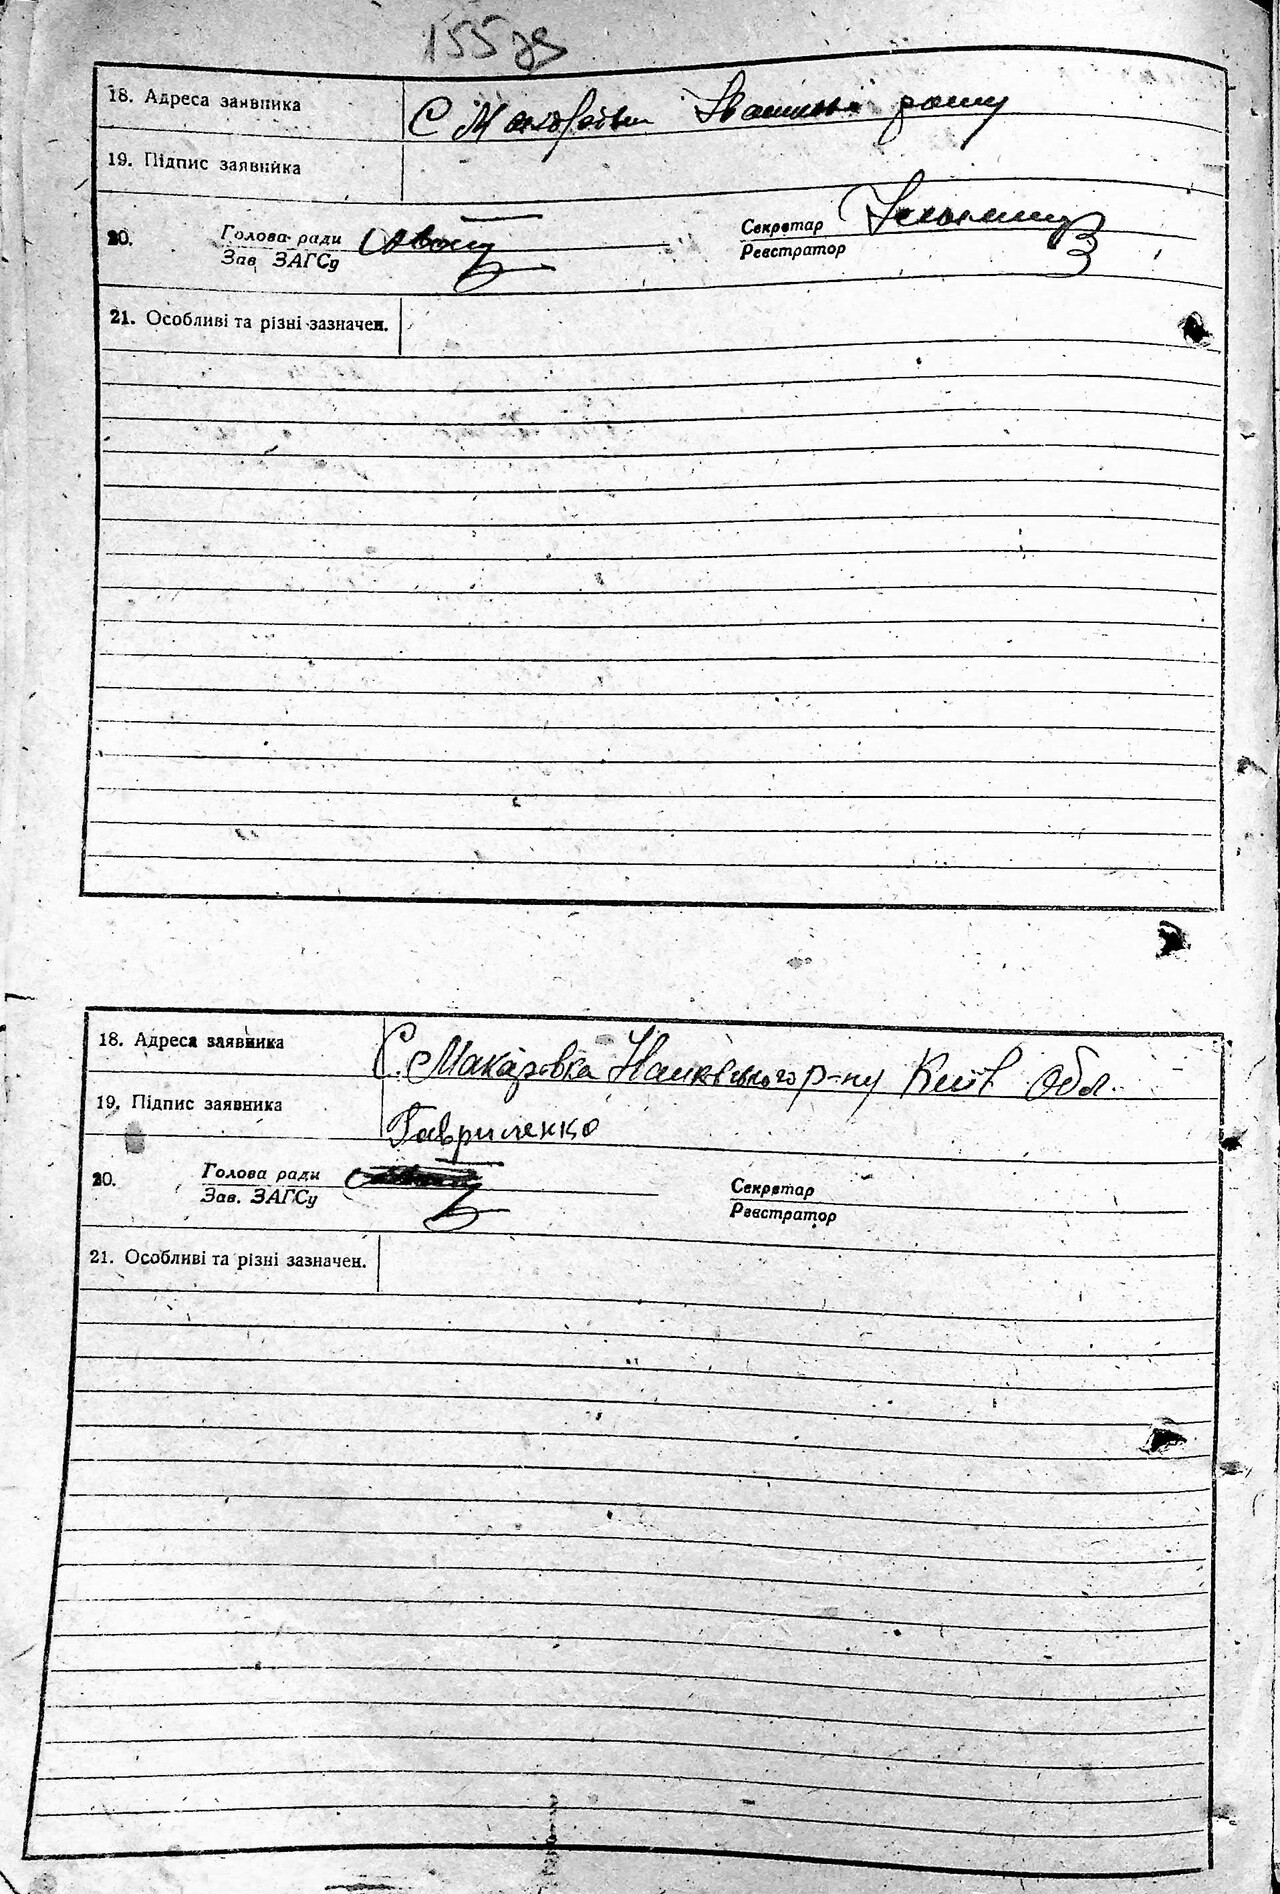 155 зв
18. Адреса заявника С
19. Підпис заявника
20. Голова ради Секретар
Зав. ЗАГСу Реєстратор
21. Особливі та різні зазначен.
18. Адреса заявника С. Макаровка Іванківського р-ну Київ Обл.
19. Підпис заявника Гавриленко
20. Голова ради Секретар
Зав. ЗАГСу Реєстратор
21. Особливі та різні зазначен.